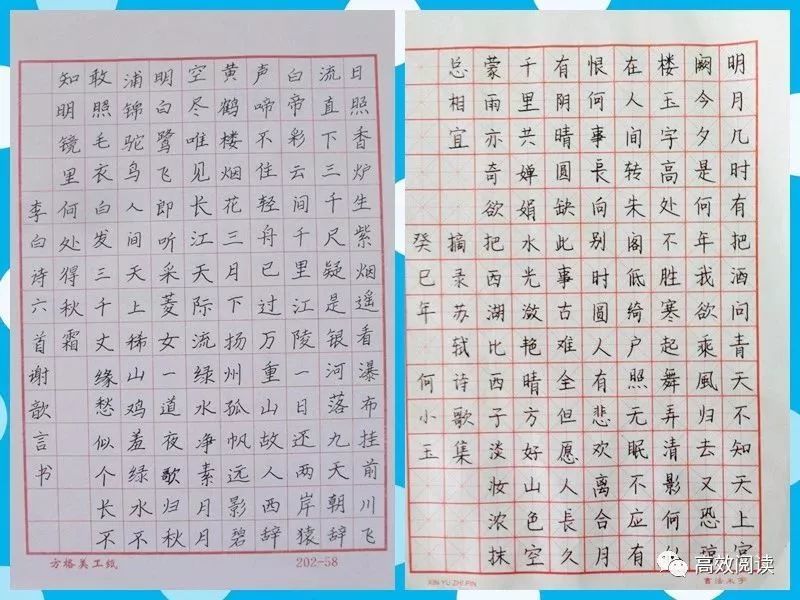 日照香炉生紫烟遥看瀑布挂前川飞
流直下三千尺疑是银河落九天朝辞
白帝彩云间千里江陵一日还两岸猿
声啼不住轻舟已过万重山故人西辞
黄鹤楼烟花三月下扬州孤帆远影碧
空尽唯见长江天际流绿水净素月月
明白鹭飞郎听采菱女一道夜歌归秋
浦锦驼鸟人间天上稀山鸡羞绿水不
敢照毛衣白发三千丈缘愁似个长不
知明镜里何处得秋霜
李白诗六首谢歆言书
方格美工纸 202-58
明月几时有把酒问青天不知天上宫
阙今夕是何年我欲乘風归去又恐琼
楼玉宇高处不胜寒起舞弄清影何似
在人间转朱阁低绮户照无眠不应有
恨何事長向别时圆人有悲欢离合月
有阴晴圆缺此事古难全但愿人長久
千里共婵娟水光潋艳晴方好山色空
蒙雨亦奇欲把西湖比西子淡妆浓抹
总相宜 摘录苏轼诗歌集
癸巳年 何小玉
XIN YU ZHI PIN
高效阅读